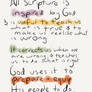 All Scripture is
inspired by God
is useful to teach us
what is true and to
make us realize what
is wrong
It corrects us when
we are wrong
God uses it to
prepare
His people to do